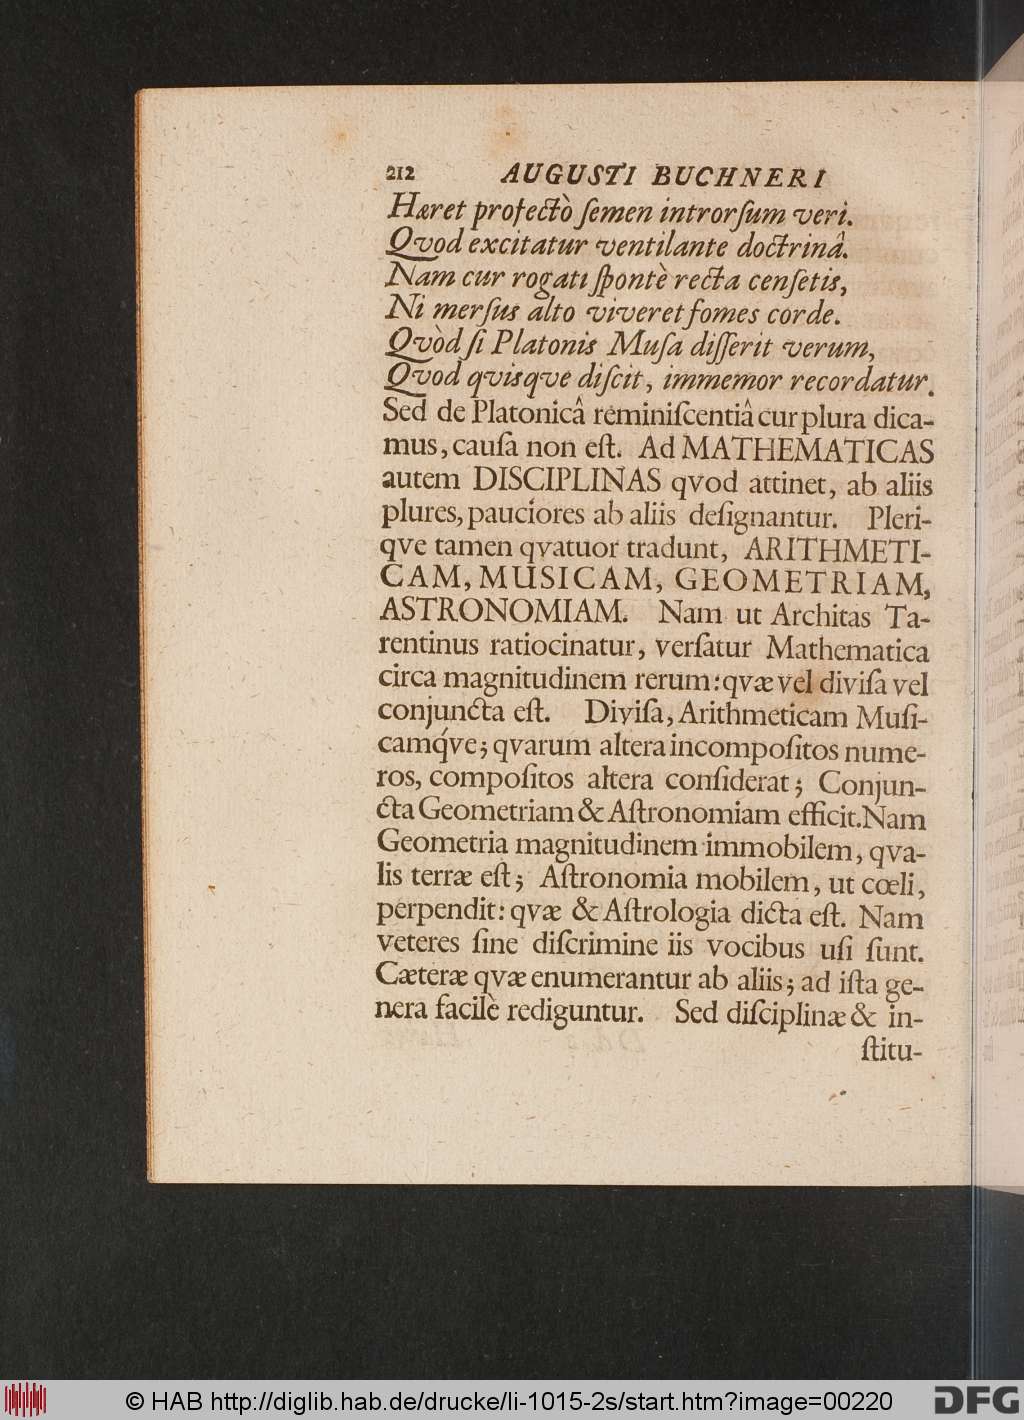 212 AUGUSTI BUCHNERI
Hæret profectò ſemen introrſum veri.
Qvod excitatur ventilante doctrinâ.
Nam cur rogati ſpontè recta cenſetis,
Ni merſus alto viveret fomes corde.
Qvòd ſi Platonis Muſa diſſerit verum,
Qvod qvisqve diſcit, immemor recordatur.
Sed de Platonicâ reminiſcentiâ cur plura dica-
mus, cauſa non eſt. Ad MATHEMATICAS
autem DISCIPLINAS qvod attinet, ab aliis
plures, pauciores ab aliis deſignantur. Pleri-
qve tamen qvatuor tradunt, ARITHMETI-
CAM, MUSICAM, GEOMETRIAM,
ASTRONOMIAM. Nam ut Architas Ta-
rentinus ratiocinatur, verſatur Mathematica
circa magnitudinem rerum: qvæ vel diviſa vel
conjuncta eſt. Diviſa, Arithmeticam Muſi-
camq́ve; qvarum altera incompoſitos nume-
ros, compoſitos altera conſiderat; Conjun-
cta Geometriam & Aſtronomiam efficit. Nam
Geometria magnitudinem immobilem, qva-
lis terræ eſt; Aſtronomia mobilem, ut cœli,
perpendit: qvæ & Aſtrologia dicta eſt. Nam
veteres ſine diſcrimine iis vocibus uſi ſunt.
Cæteræ qvæ enumerantur ab aliis; ad iſta ge-
nera facilè rediguntur. Sed diſciplinæ & in-
ſtitu-
© HAB http://diglib.hab.de/drucke/li-1015-2s/start.htm?image=00220
DFG